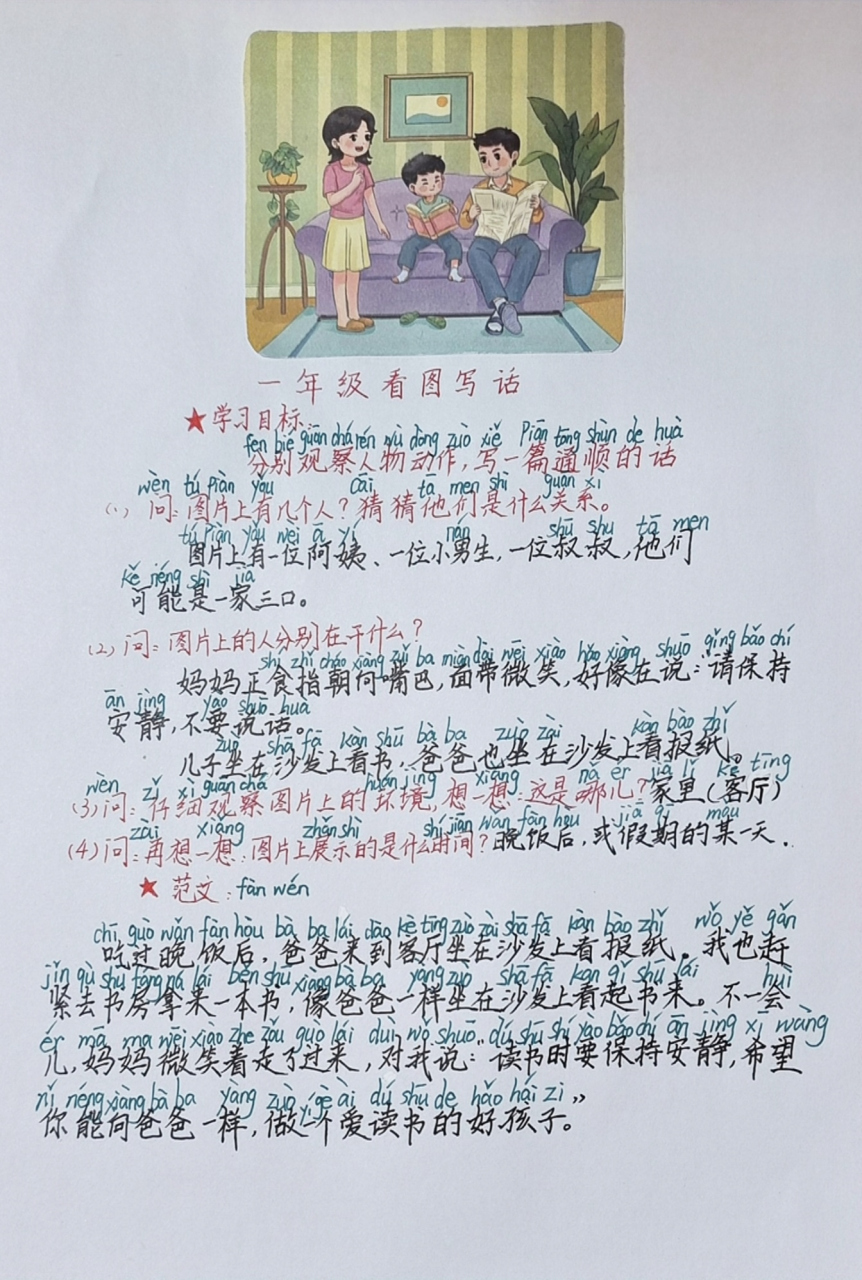 一年级看图写话
★学习目标:
fen bié guān chá rén wù dòng zuò xiě piān tōng shùn de huà
分别观察人物动作,写一篇通顺的话
wèn tú piàn yǒu cāi tā men shì guān xì
(1) 问:图片上有几个人?猜猜他们是什么关系。
tú piàn yǒu wèi ā yí nán shū shu tā men
图片上有一位阿姨、一位小男生,一位叔叔,他们
kě néng shì jiā
可能是一家三口。
(2)问:图片上的人分别在干什么?
shí zhǐ cháo xiàng zuǐ ba miàn dài wēi xiào hǎo xiàng shuō qǐng bǎo chí
妈妈正食指朝向嘴巴,面带微笑,好像在说:“请保持
ān jìng yào shuō huà
安静,不要说话。
zuò shā fā kàn shū bà ba zuò zài kàn bào zhǐ
儿子坐在沙发上看书,爸爸也坐在沙发上看报纸。
wèn zǐ xì guān chá huán jìng xiǎng nǎ ér jiā lǐ kè tīng
(3)问:仔细观察图片上的环境,想一想:这是哪儿?家里(客厅)
zài xiǎng zhǎn shì shí jiān wǎn fàn hòu jià qī mǒu
(4)问:再想一想:图片上展示的是什么时间?晚饭后,或假期的某一天.
★ 范文:fàn wén
chī guò wǎn fàn hòu bà ba lái dào kè tīng zuò zài shā fā kàn bào zhǐ wǒ yě gǎn
吃过晚饭后,爸爸来到客厅坐在沙发上看报纸。我也赶
jǐn qù shū fáng ná lái běn shū xiàng bà ba yàng zuò shā fā kàn qǐ shū lái huì
紧去书房拿来一本书,像爸爸一样坐在沙发上看起书来。不一会
ér mā ma wēi xiào zhe zǒu guò lái duì wǒ shuō dú shū shí yào bǎo chí ān jìng xī wàng
儿,妈妈微笑着走了过来,对我说:“读书时要保持安静,希望
nǐ néng xiàng bà ba yàng zuò yí gè ài dú shū de hǎo hái zi ”
你能向爸爸一样,做一个爱读书的好孩子。